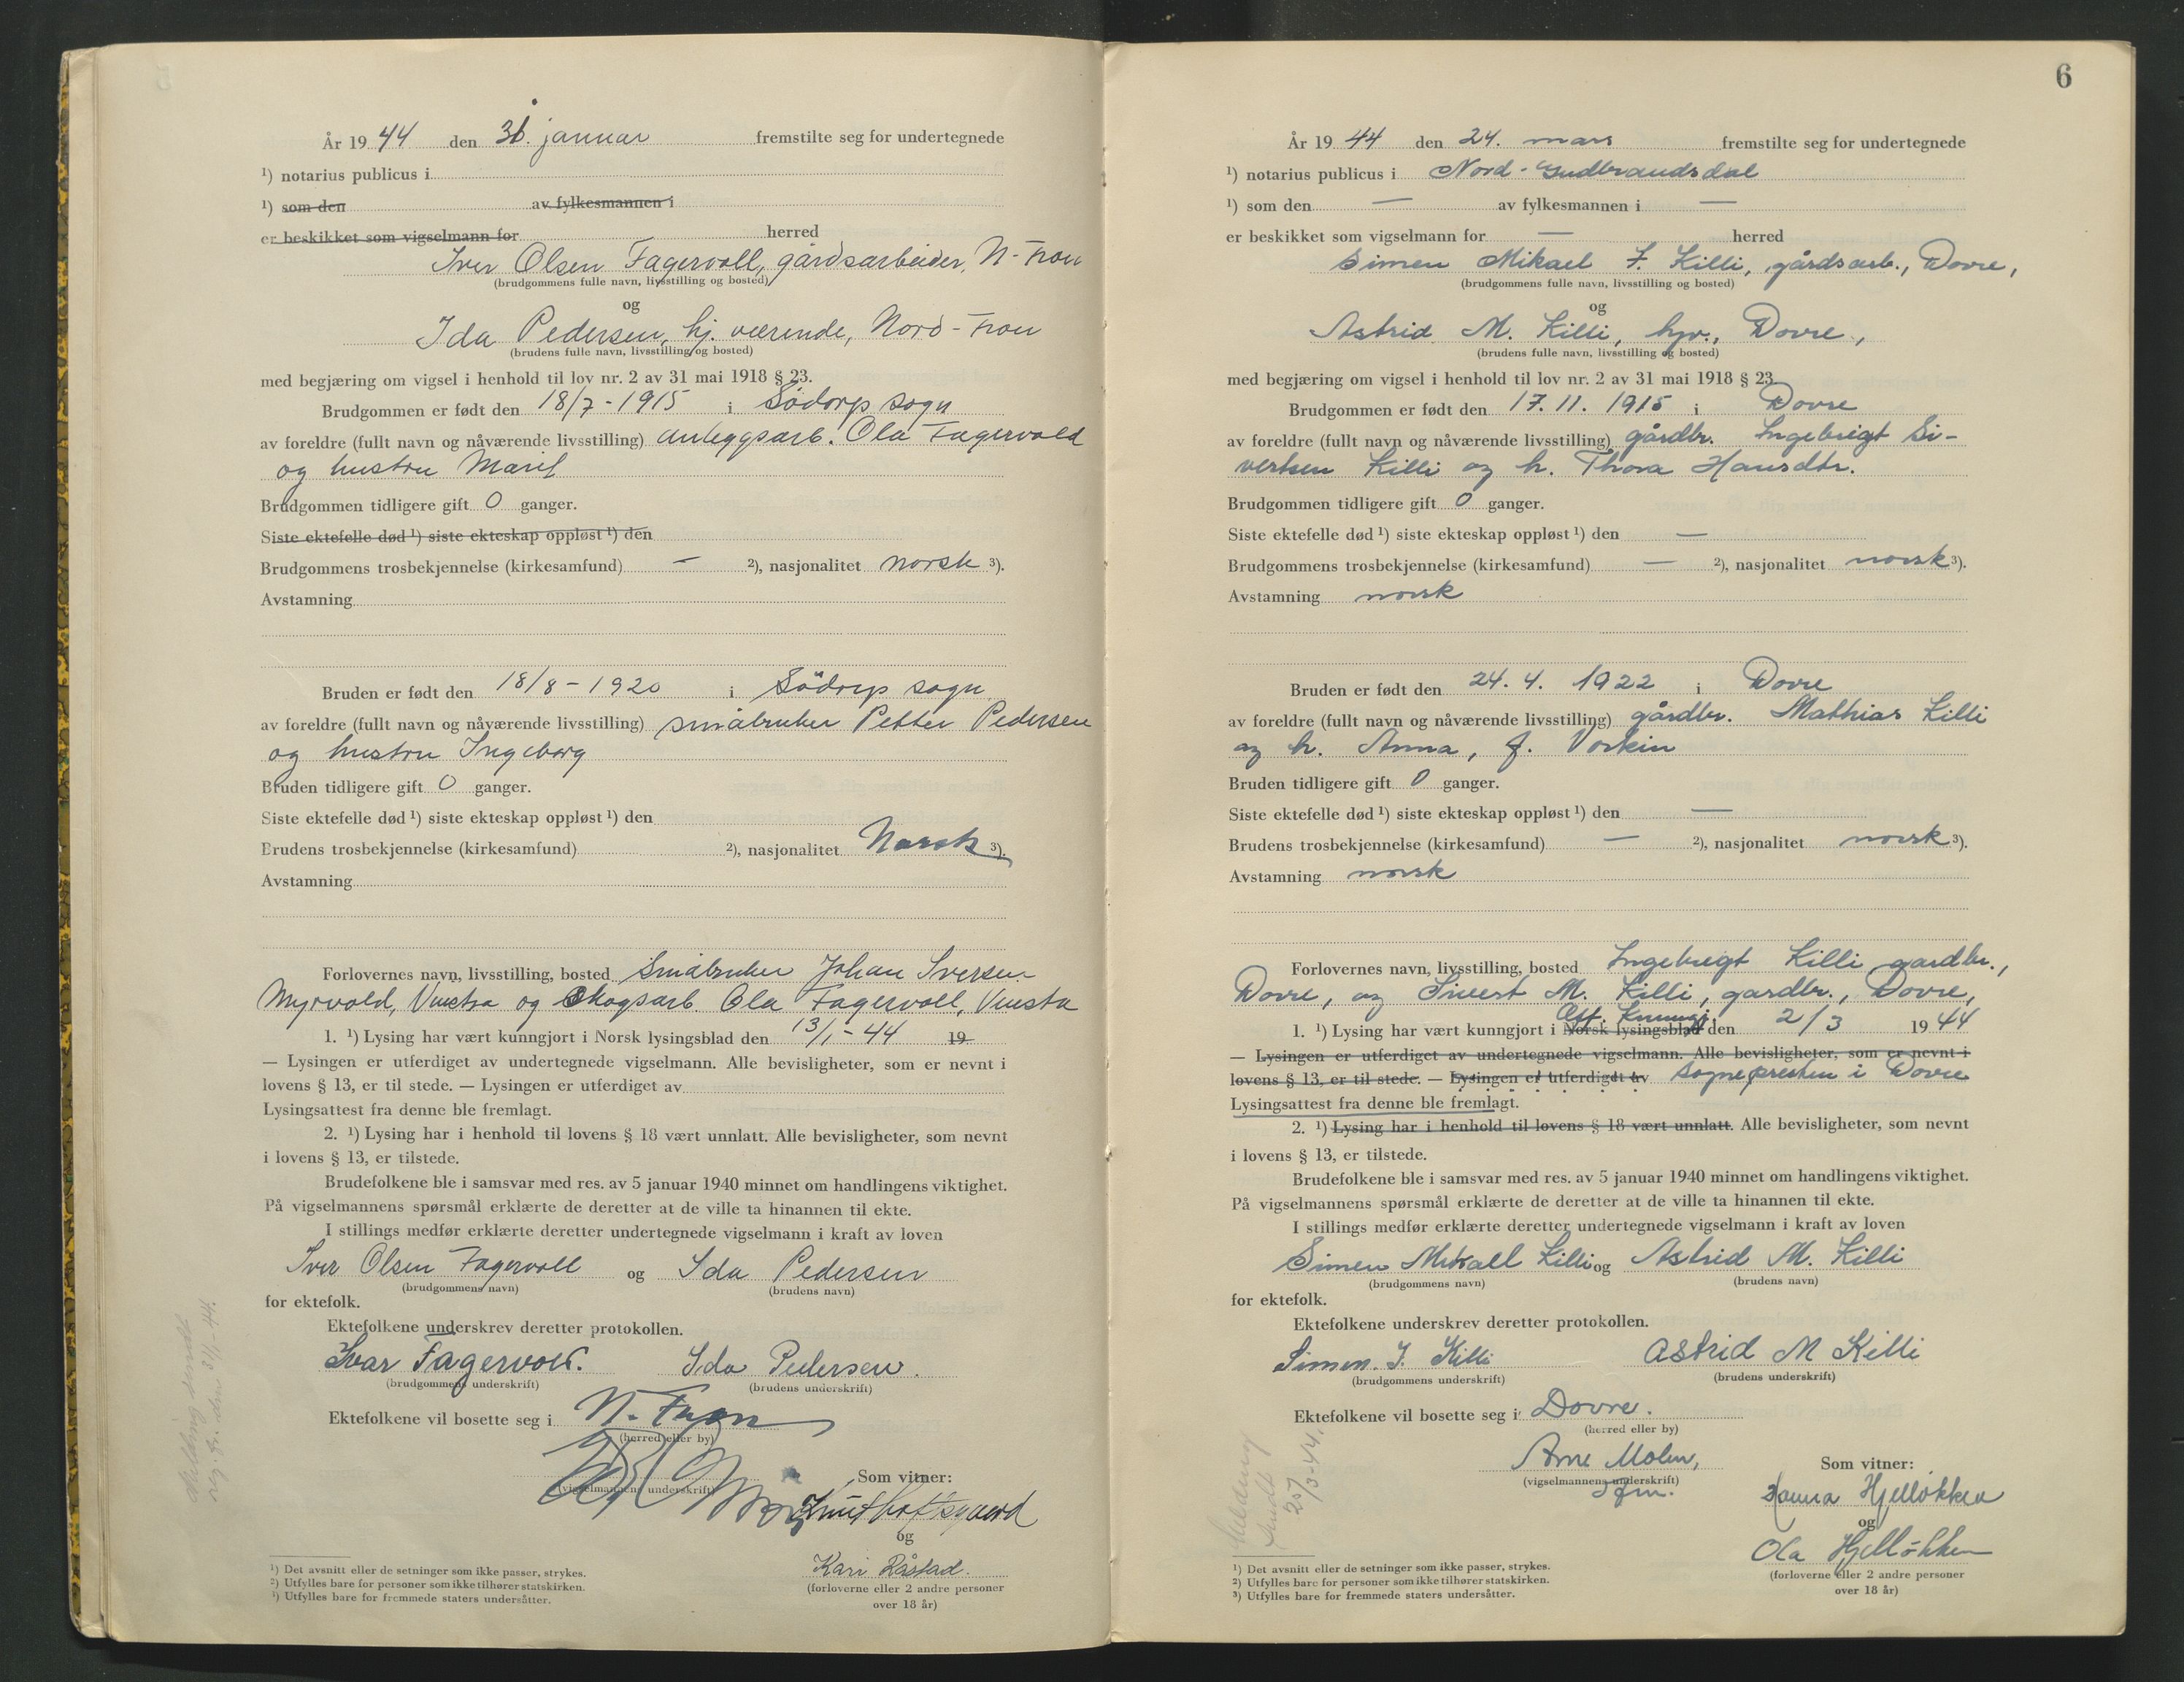 År 19 44 den 31. januar fremstilte seg for undertegnede
¹) notarius publicus i
¹) som den av fylkesmannen i
er beskikket som vigselmann for herred
Iver Olsen Fagervoll, gårdsarbeider, N-Fron
(brudgommens fulle navn, livsstilling og bosted)
og
Ida Pedersen, hj. værende, Nord-Fron
(brudens fulle navn, livsstilling og bosted)
med begjæring om vigsel i henhold til lov nr. 2 av 31 mai 1918 § 23.
Brudgommen er født den 18/7-1915 i Södorp sogn
av foreldre (fullt navn og nåværende livsstilling) anleggsarb. Ola Fagervold
og hustru Marit
Brudgommen tidligere gift 0 ganger.
Siste ektefelle død ¹) siste ekteskap oppløst ¹) den
Brudgommens trosbekjennelse (kirkesamfund) — ²), nasjonalitet norsk ³).
Avstamning
Bruden er født den 18/8-1920 i Södorp sogn
av foreldre (fullt navn og nåværende livsstilling) småbruker Petter Pedersen
og hustru Ingeborg
Bruden tidligere gift 0 ganger.
Siste ektefelle død ¹) siste ekteskap oppløst ¹) den
Brudens trosbekjennelse (kirkesamfund) ²), nasjonalitet Norsk ³).
Avstamning
Forlovernes navn, livsstilling, bosted Småbruker Johan Iversen
Myrvold, Vinstra og Skogsarb. Ola Fagervoll, Vinstra
1. ¹) Lysing har vært kunngjort i Norsk lysingsblad den 13/1-44 19
— Lysingen er utferdiget av undertegnede vigselmann. Alle bevisligheter, som er nevnt i
lovens § 13, er til stede. — Lysingen er utferdiget av
Lysingsattest fra denne ble fremlagt.
2. ¹) Lysing har i henhold til lovens § 18 vært unnlatt. Alle bevisligheter, som nevnt
i lovens § 13, er tilstede.
Brudefolkene ble i samsvar med res. av 5 januar 1940 minnet om handlingens viktighet.
På vigselmannens spørsmål erklærte de deretter at de ville ta hinannen til ekte.
I stillings medfør erklærte deretter undertegnede vigselmann i kraft av loven
Iver Olsen Fagervoll og Ida Pedersen
(brudgommens navn) (brudens navn)
for ektefolk.
Ektefolkene underskrev deretter protokollen.
Ivar Fagervold. Ida Pedersen.
(brudgommens underskrift) (brudens underskrift)
Ektefolkene vil bosette seg i N. Fron
(herred eller by)
(vigselmannens underskrift) Som vitner:
og
Kari Råstad.
(forloverne eller 2 andre personer
over 18 år)
Melding sendt
reg. f. den 31/1-44.
¹) Det avsnitt eller de setninger som ikke passer, strykes.
²) Utfylles bare for personer som ikke tilhører statskirken.
³) Utfylles bare for fremmede staters undersåtter.
6
År 19 44 den 24. mars fremstilte seg for undertegnede
¹) notarius publicus i Nord-Gudbrandsdal
¹) som den — av fylkesmannen i —
er beskikket som vigselmann for — herred
Simen Mikael I. Killi, gårdsarb., Dovre,
(brudgommens fulle navn, livsstilling og bosted)
og
Astrid M. Killi, hjv., Dovre,
(brudens fulle navn, livsstilling og bosted)
med begjæring om vigsel i henhold til lov nr. 2 av 31 mai 1918 § 23.
Brudgommen er født den 17. 11. 1915 i Dovre
av foreldre (fullt navn og nåværende livsstilling) gårdbr. Ingebrigt Si-
vertsen Killi og h. Thora Hansdtr.
Brudgommen tidligere gift 0 ganger.
Siste ektefelle død ¹) siste ekteskap oppløst ¹) den —
Brudgommens trosbekjennelse (kirkesamfund) — ²), nasjonalitet norsk ³).
Avstamning norsk
Bruden er født den 24. 4. 1922 i Dovre
av foreldre (fullt navn og nåværende livsstilling) gårdbr. Mathias Killi
og h. Anna, f. Vorkin
Bruden tidligere gift 0 ganger.
Siste ektefelle død ¹) siste ekteskap oppløst ¹) den —
Brudens trosbekjennelse (kirkesamfund) — ²), nasjonalitet norsk ³).
Avstamning norsk
Forlovernes navn, livsstilling, bosted Ingebrigt Killi gardbr.,
Dovre, og Sivert M. Killi, gardbr., Dovre,
1. ¹) Lysing har vært kunngjort i Norsk lysingsblad Off. Kunngj. den 2/3 19 44
— Lysingen er utferdiget av undertegnede vigselmann. Alle bevisligheter, som er nevnt i
lovens § 13, er til stede. — Lysingen er utferdiget av Sognepresten i Dovre
Lysingsattest fra denne ble fremlagt.
2. ¹) Lysing har i henhold til lovens § 18 vært unnlatt. Alle bevisligheter, som nevnt
i lovens § 13, er tilstede.
Brudefolkene ble i samsvar med res. av 5 januar 1940 minnet om handlingens viktighet.
På vigselmannens spørsmål erklærte de deretter at de ville ta hinannen til ekte.
I stillings medfør erklærte deretter undertegnede vigselmann i kraft av loven
Simen Mikael Killi og Astrid M. Killi
(brudgommens navn) (brudens navn)
for ektefolk.
Ektefolkene underskrev deretter protokollen.
Simen. I. Killi Astrid M Killi
(brudgommens underskrift) (brudens underskrift)
Ektefolkene vil bosette seg i Dovre.
(herred eller by)
Arne Molen,
(vigselmannens underskrift) Som vitner:
Hanna Hjelløkken
og
Ola Hjelløkken
(forloverne eller 2 andre personer
over 18 år)
Melding
sendt
25/3-44.
¹) Det avsnitt eller de setninger som ikke passer, strykes.
²) Utfylles bare for personer som ikke tilhører statskirken.
³) Utfylles bare for fremmede staters undersåtter.